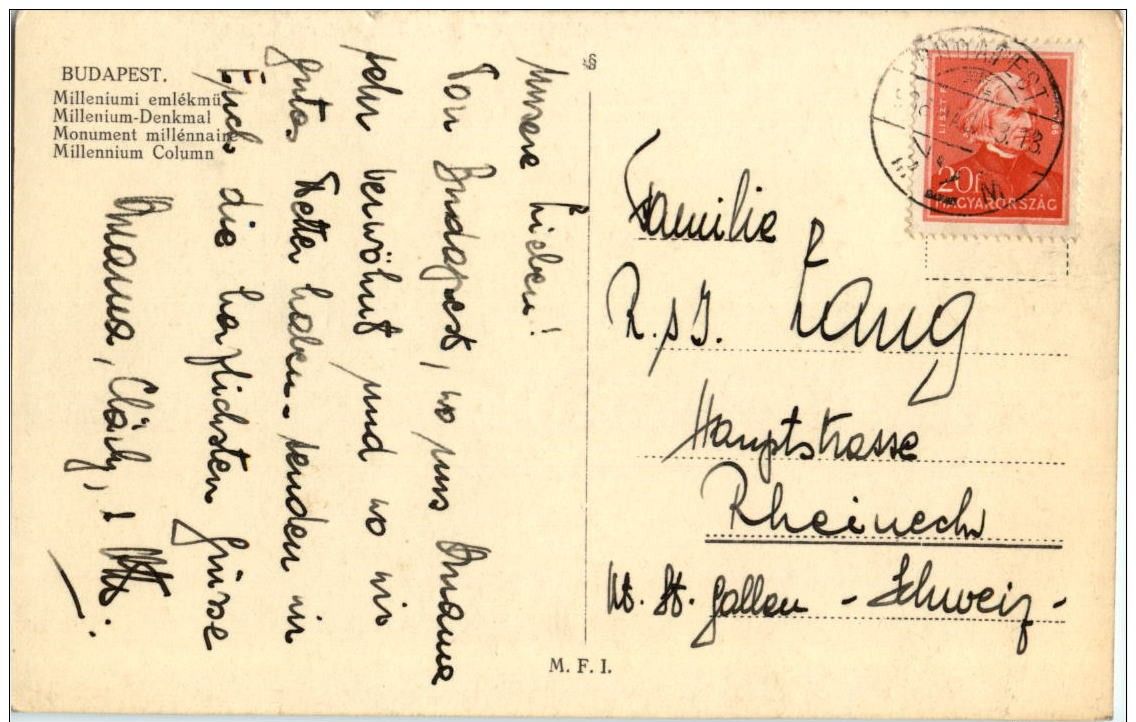 BUDAPEST.
Milleniumi emlékmű
Millenium-Denkmal
Monument millénnaire
Millennium Column
Unsere Lieben!
Von Budapest, wo uns Anama
sehr verwöhnt und wo wir
gutes Wetter haben. senden wir
Euch die herzlichsten Grüsse
Anama,
LISZT F.
20f
MAGYARORSZÁG
BUDAPEST
Familie
Lang
Hauptstrasse
Rheineck
Kt. St. Gallen - Schweiz -
M. F. I.